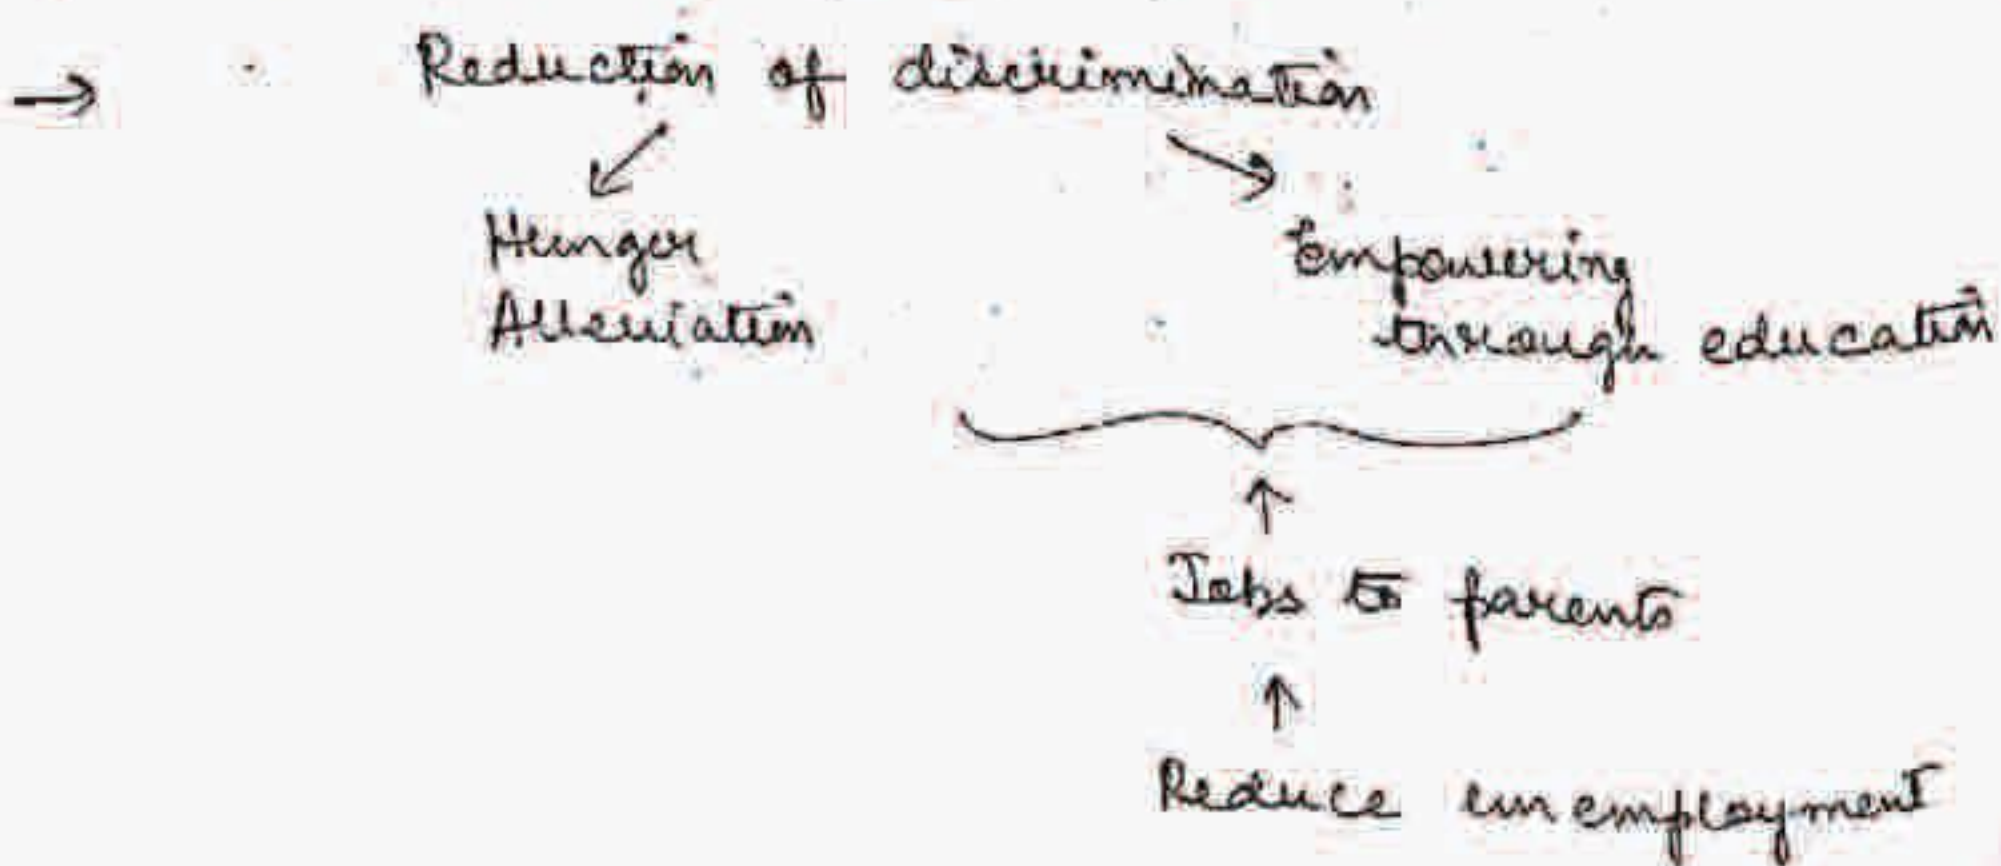 → Reduction of discrimination
Hunger
Alleviation
Empowering
through education
Jobs to parents
Reduce unemployment